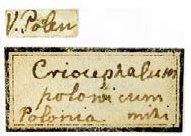 V. Polen
Criocephalum
polonicum
Polonia mihi